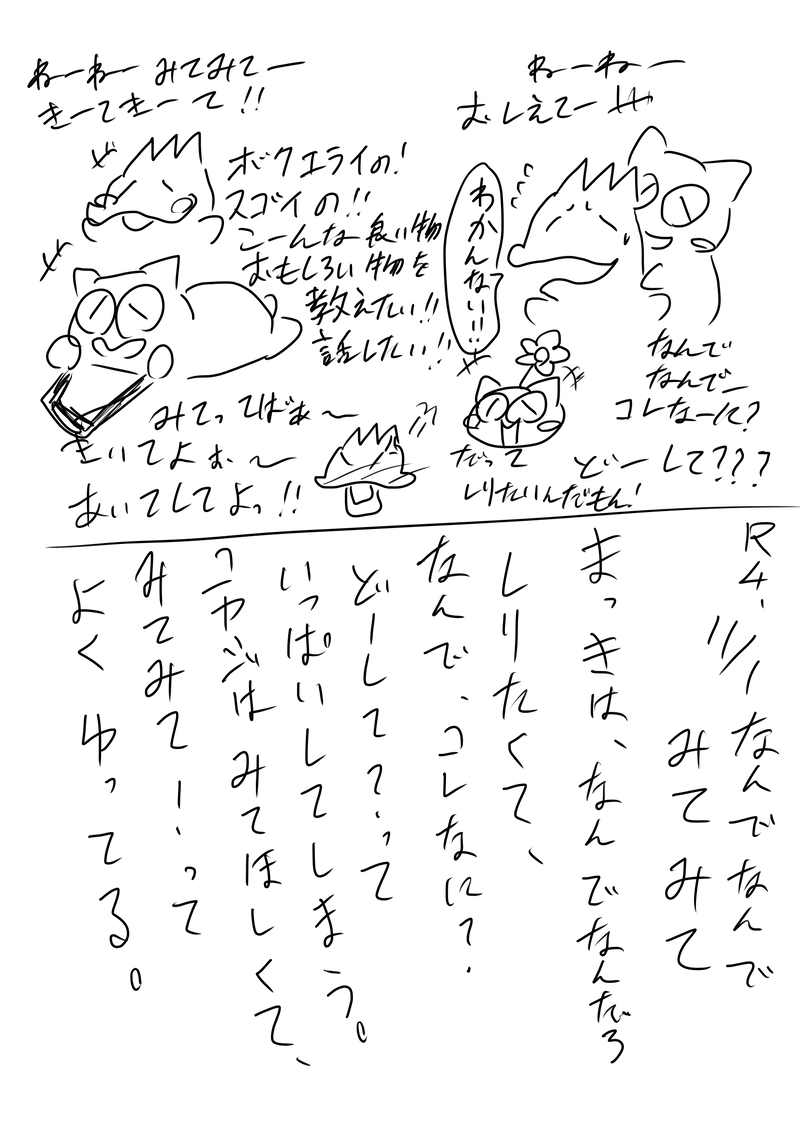 ねーねー
おしえてー!!!
わかんない!!
なんで
なんでー
コレなーに?
どーして???
だって
しりたいんだもん!
ねーねー みてみてー
きーてきーて!!
ボクエライの!
スゴイの!!
こーんな良い物
おもしろい物を
教えたい!!
話したい!!
みてってばぁ〜
きいてよぉ〜
あいてしてよっ!!
R4.11/1 なんでなんで
みてみて
まっきは、なんでなんだろ
しりたくて、
なんで、コレなに?.
どーして?.って
いっぱいしてしまう。
コヤジは みてほしくて、
みてみてー!.って
よくゆってる。